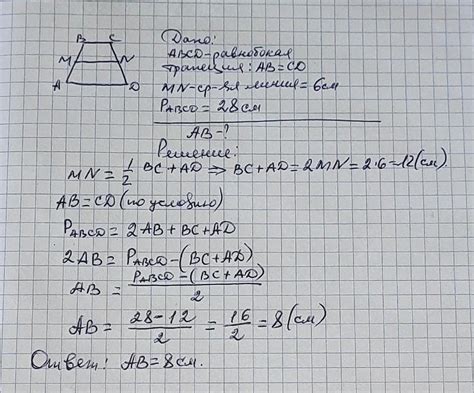 B C
M N
A D
Дано:
ABCD-равнобокая
трапеция: AB=CD
MN-ср-яя линия=6см
PABCD = 28см
AB-?
Решение:
MN = 1/2 BC+AD ⇒ BC+AD=2MN=2·6=12(см)
AB=CD (по условию)
PABCD = 2AB+BC+AD
2AB = PABCD-(BC+AD)
AB = PABCD-(BC+AD)/2
AB = 28-12/2 = 16/2 = 8(см)
Ответ: AB=8см.